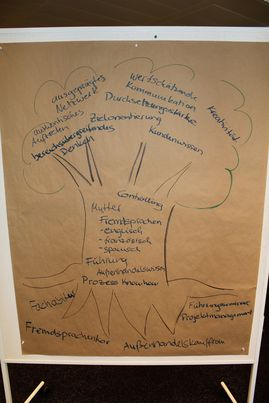 ausgeprägtes
Netzwerk
Wertschätzende
Kommunikation
Durchsetzungsstärke
Kreativität
authentisches
Auftreten
Zielorientierung
bereichsübergreifendes
Denken
Kundenwissen
Controlling
Mutter
Fremdsprachen
- englisch
- französisch
- spanisch
Führung
Außenhandelswissen
Prozess Knowhow
Projektmanagement
Fremdsprachenkor
Außenhandelskauffrau